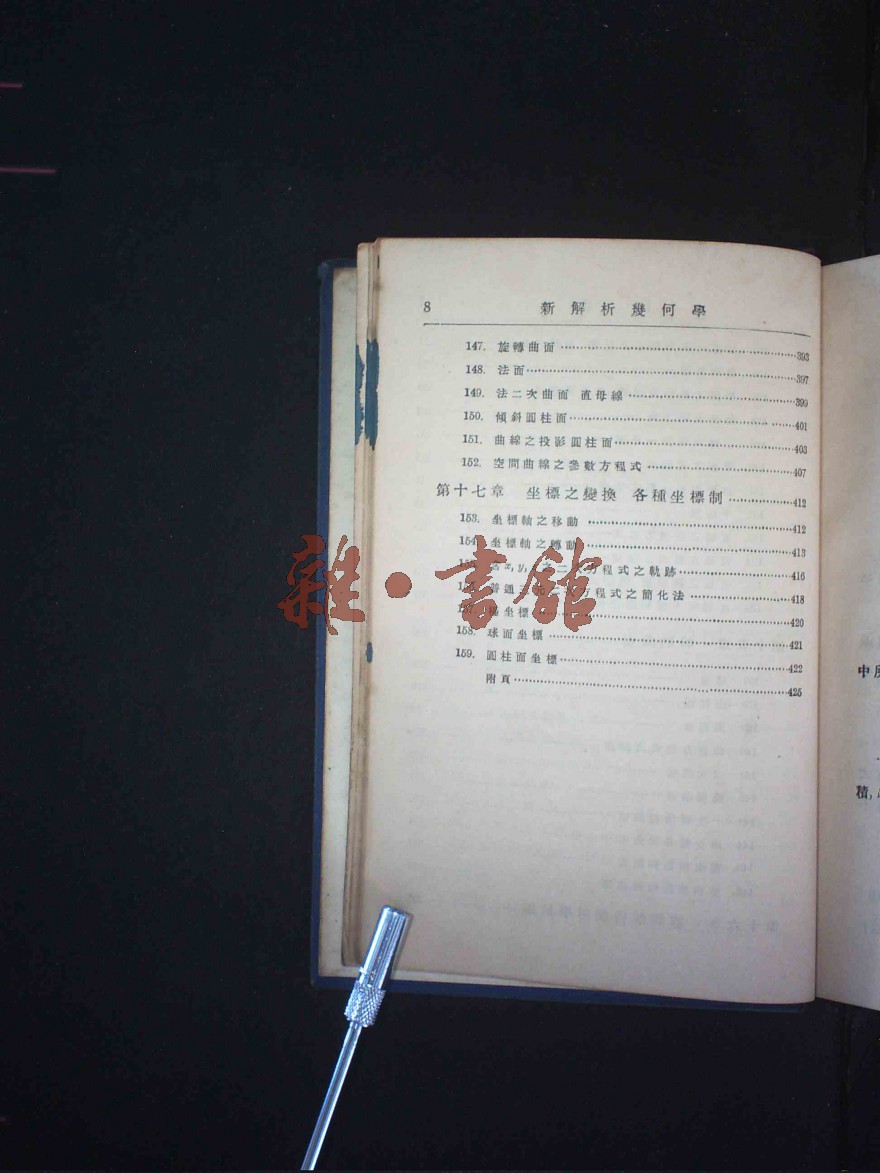 8 新解析幾何學
147. 旋轉曲面 393
148. 法面 397
149. 法二次曲面 直母線 399
150. 傾斜圓柱面 401
151. 曲線之投影圓柱面 403
152. 空間曲線之參數方程式 407
第十七章 坐標之變換 各種坐標制 412
153. 坐標軸之移動 412
154. 坐標軸之轉動 413
x, y, 之二次方程式之軌跡 416
普通三元二次方程式之簡化法 418
坐標 420
158. 球面坐標 421
159. 圓柱面坐標 422
附頁 425
雜·書館
中
積,